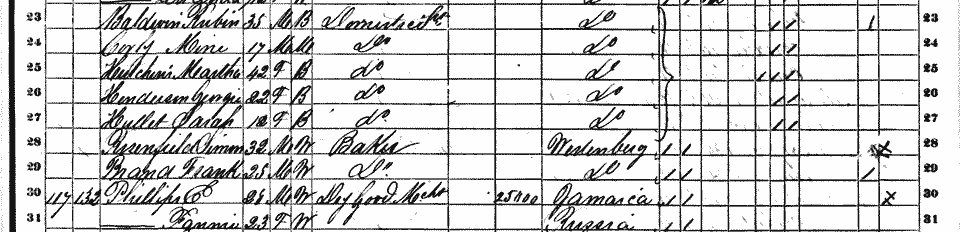 23 Baldwin Rubin 35 M B Domestic Do 1 23
24 Mine 17 M Do Do 24
25 Hutchins Meartha 42 F B Do Do 25
26 Henderson Georgie 22 F B Do Do 26
27 Hullet Sarah 12 F B Do Do 27
28 Rosenfield Simm 32 M W Baker Wertenberg 28
29 Brand Frank 25 M W Do Do 1 29
30 117 132 Phillips E 28 M W Dry Good Mcht 25000 Jamaica 30
31 Fannie 23 F W Russia 31